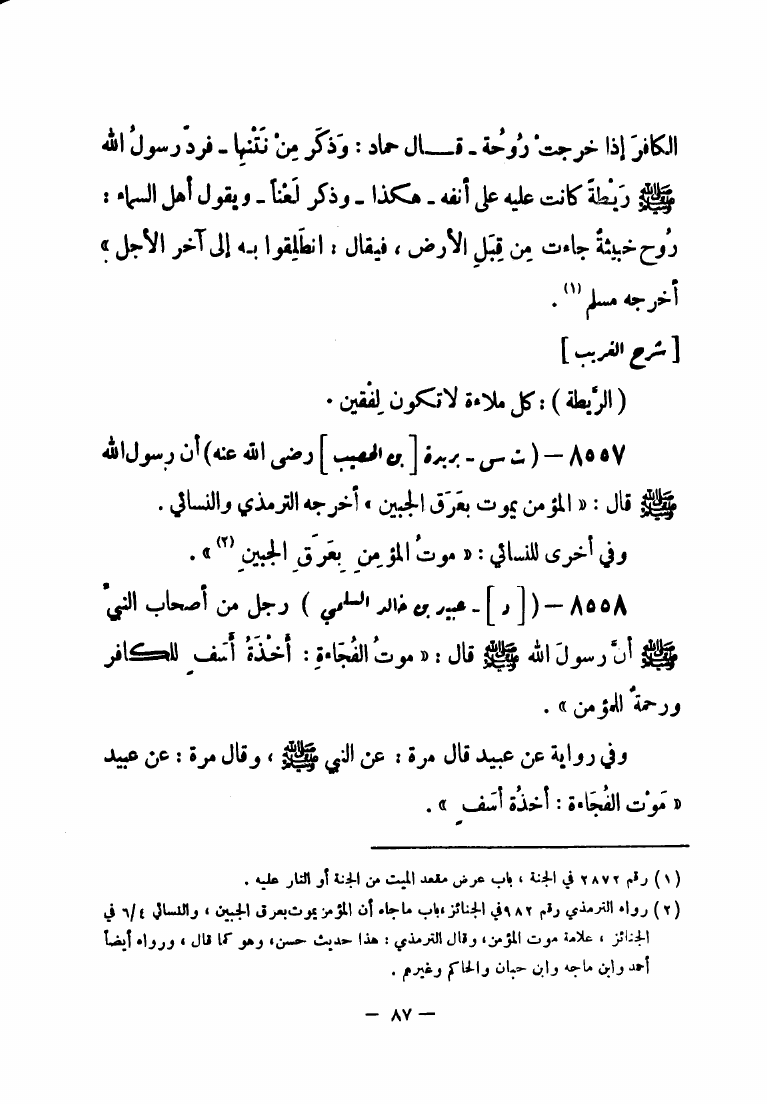 الكافرَ إذا خرجتْ رُوحُه - قــال حماد : وَذكَر مِنْ نَتْنِها - فردَّ رسولُ الله
ﷺ رَيْطَةً كانت عليه على أنفه - هكذا - وذكر لَعْناً - ويقول أهل السماء :
رُوح خبيثةٌ جاءت مِن قِبَلِ الأرض ، فيقال : انطلِقوا بـه إلى آخر الأجل »
أخرجه مسلم (١) .
[ شرح الغريب ]
( الرَّيطة ) : كل ملاءة لا تكون لِفْقين .
٨٥٥٧ – ( ت س - بريدة [ بن الحصيب ] رضى الله عنه ) أن رسول الله
ﷺ قال : « المؤمن يموت بعَرَق الجبين » أخرجه الترمذي والنسائي .
وفي أخرى للنسائي : « موتُ المؤمِنِ بِعَرَقِ الجبينِ (٢) » .
٨٥٥٨ – ( [ د ] - عبيد بن خالد السلمي ) رجل من أصحاب النبيِّ
ﷺ أنَّ رسولَ الله ﷺ قال : « موتُ الفُجَاءةِ : أَخْذَةُ أَسَفٍ للكافر
ورحمةٌ للمؤمن » .
وفي رواية عن عبيد قال مرة : عن النبي ﷺ ، وقال مرة : عن عبيد
« مَوْت الفُجَاءة : أخذُة أسَفٍ » .
(١) رقم ٢٨٧٢ في الجنة ، باب عرض مقعد الميت من الجنة أو النار عليه .
(٢) رواه الترمذي رقم ٩٨٢ في الجنائز ، باب ماجاء أن المؤمن يموت بعرق الجبين ، والنسائي ٤/٦ في
الجنائز ، علامة موت المؤمن ، وقال الترمذي : هذا حديث حسن ، وهو كما قال ، ورواه أيضاً
أحمد وابن ماجه وابن حبان والحاكم وغيرهم .
– ٨٧ –